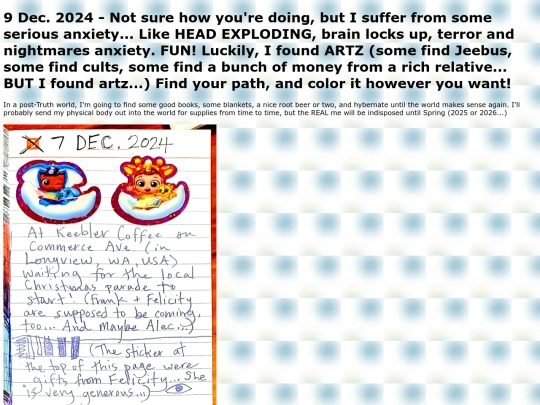 9 Dec. 2024 - Not sure how you're doing, but I suffer from some
serious anxiety... Like HEAD EXPLODING, brain locks up, terror and
nightmares anxiety. FUN! Luckily, I found ARTZ (some find Jeebus,
some find cults, some find a bunch of money from a rich relative...
BUT I found artz...) Find your path, and color it however you want!
In a post-Truth world, I'm going to find some good books, some blankets, a nice root beer or two, and hybernate until the world makes sense again. I'll
probably send my physical body out into the world for supplies from time to time, but the REAL me will be indisposed until Spring (2025 or 2026...)
7 DEC. 2024
At Keebler Coffee on
Commerce Ave. (in
Longview, WA, USA)
waiting for the local
Christmas parade to
start! (Frank + Felicity
are supposed to be coming,
too... And Maybe Alec...)
(The sticker at
the top of this page were
gifts from Felicity... She
is very generous...)